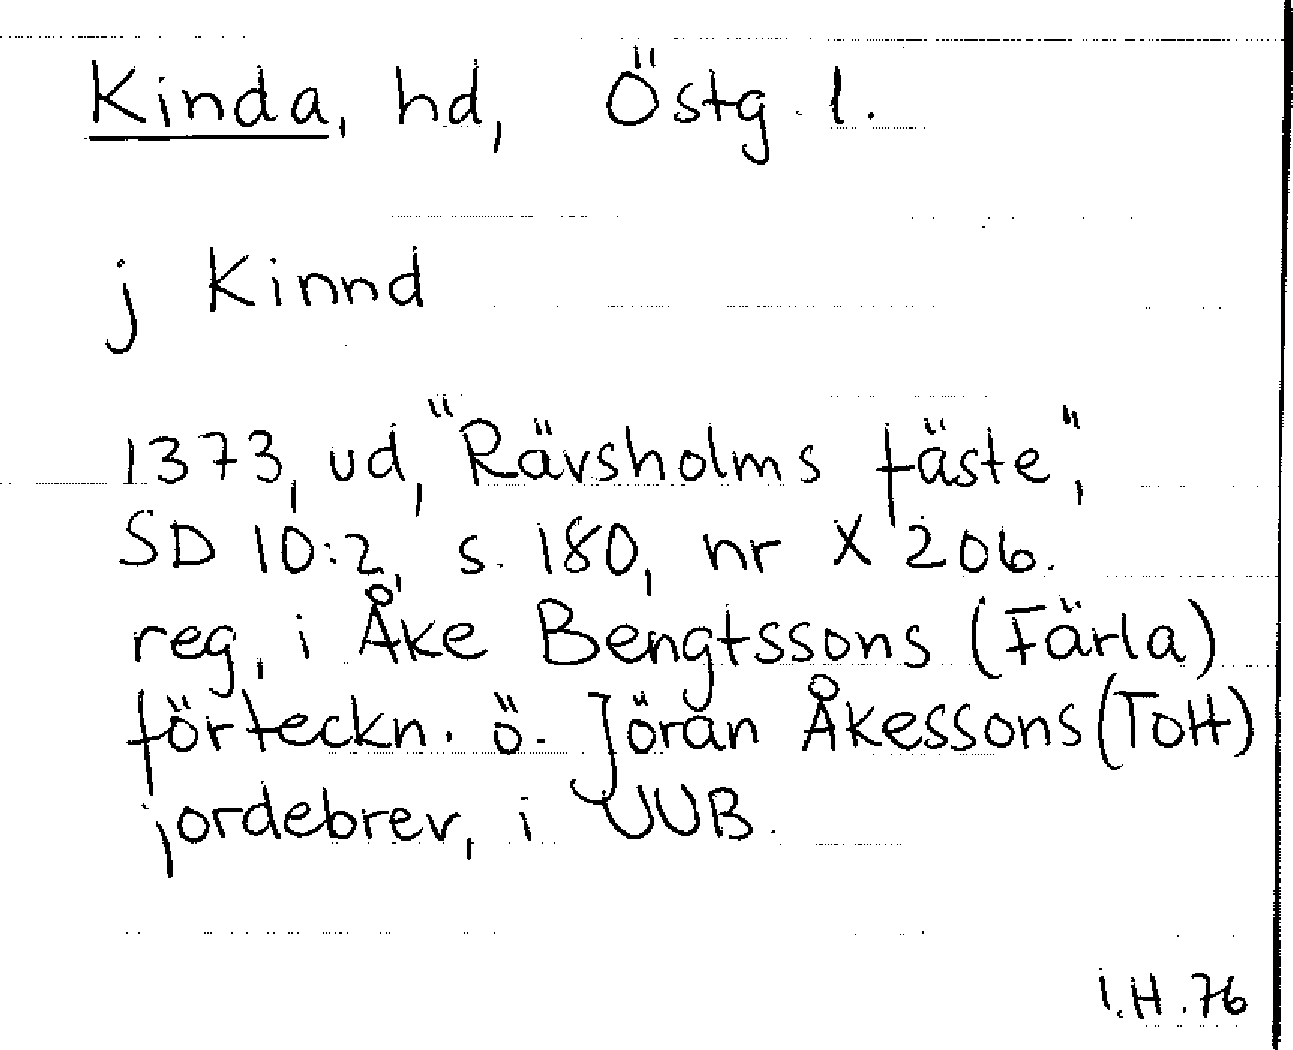 Kinda, hd, Östg. l.
j Kinnd
1373, ud, "Rävsholms fäste",
SD 10:2, s. 180, nr X 206.
reg. i Åke Bengtssons (Färla)
förteckn. ö. Jöran Åkessons (Tott)
jordebrev, i UUB.
I.H. 76